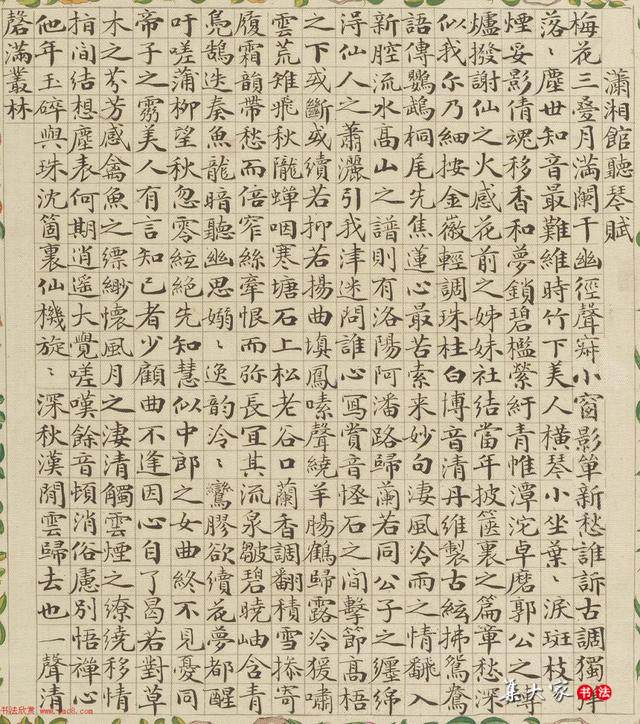 瀟湘館聽琴賦
梅花三疊月滿闌干幽徑聲寂小窗影單新愁誰訴古調獨彈
落〻塵世知音最難維時竹下美人横琴小坐葉〻淚斑枝
煙妥影倩魂移香和夢鎖碧檻縈紆青帷潭沱卓磨郭公之磚
爐撥謝仙之火感花前之姊妹社結當年披篋裏之篇章愁深
似我尔乃細按金徽輕調珠柱白博音清丹維製古絃拂鴛鴦
語傳鸚鵡桐尾先焦蓮心最苦索来妙句淒風冷雨之情飜入
新腔流水高山之譜則有洛陽阿潘路歸蘭若同公子之纏綿
淂仙人之蕭灑引我津迷問誰心寫賞音怪石之間擊節高梧
之下或斷或續若抑若揚曲塤鳳嗉聲繞羊腸鶴歸露冷猨嘯
雲荒雉飛秋隴蟬咽寒塘石上松老谷口蘭香調翻積雪操寄
履霜韻帶愁而倍窄絲牽恨而弥長冝其流泉皺碧曉岫含青
鳬鵠迭奏魚龍暗聽幽思嫋〻逸韵泠〻鸞膠欲續花夢都醒
吁嗟蒲柳望秋忽零絃絕先知慧似中郎之女曲終不見憂同
帝子之靈美人有言知已者少顧曲不逢因心自了曷若對草
木之芬芳感禽魚之縹緲懷風月之淒清觸雲煙之繚繞移情
指間结想塵表何期逍遥大覺嗟嘆餘音頓消俗慮别悟禅心
他年玉碎與珠沈箇裏仙機旋〻深秋漢閒雲歸去也一聲清
磬滿叢林
集大家书法
书法欣赏